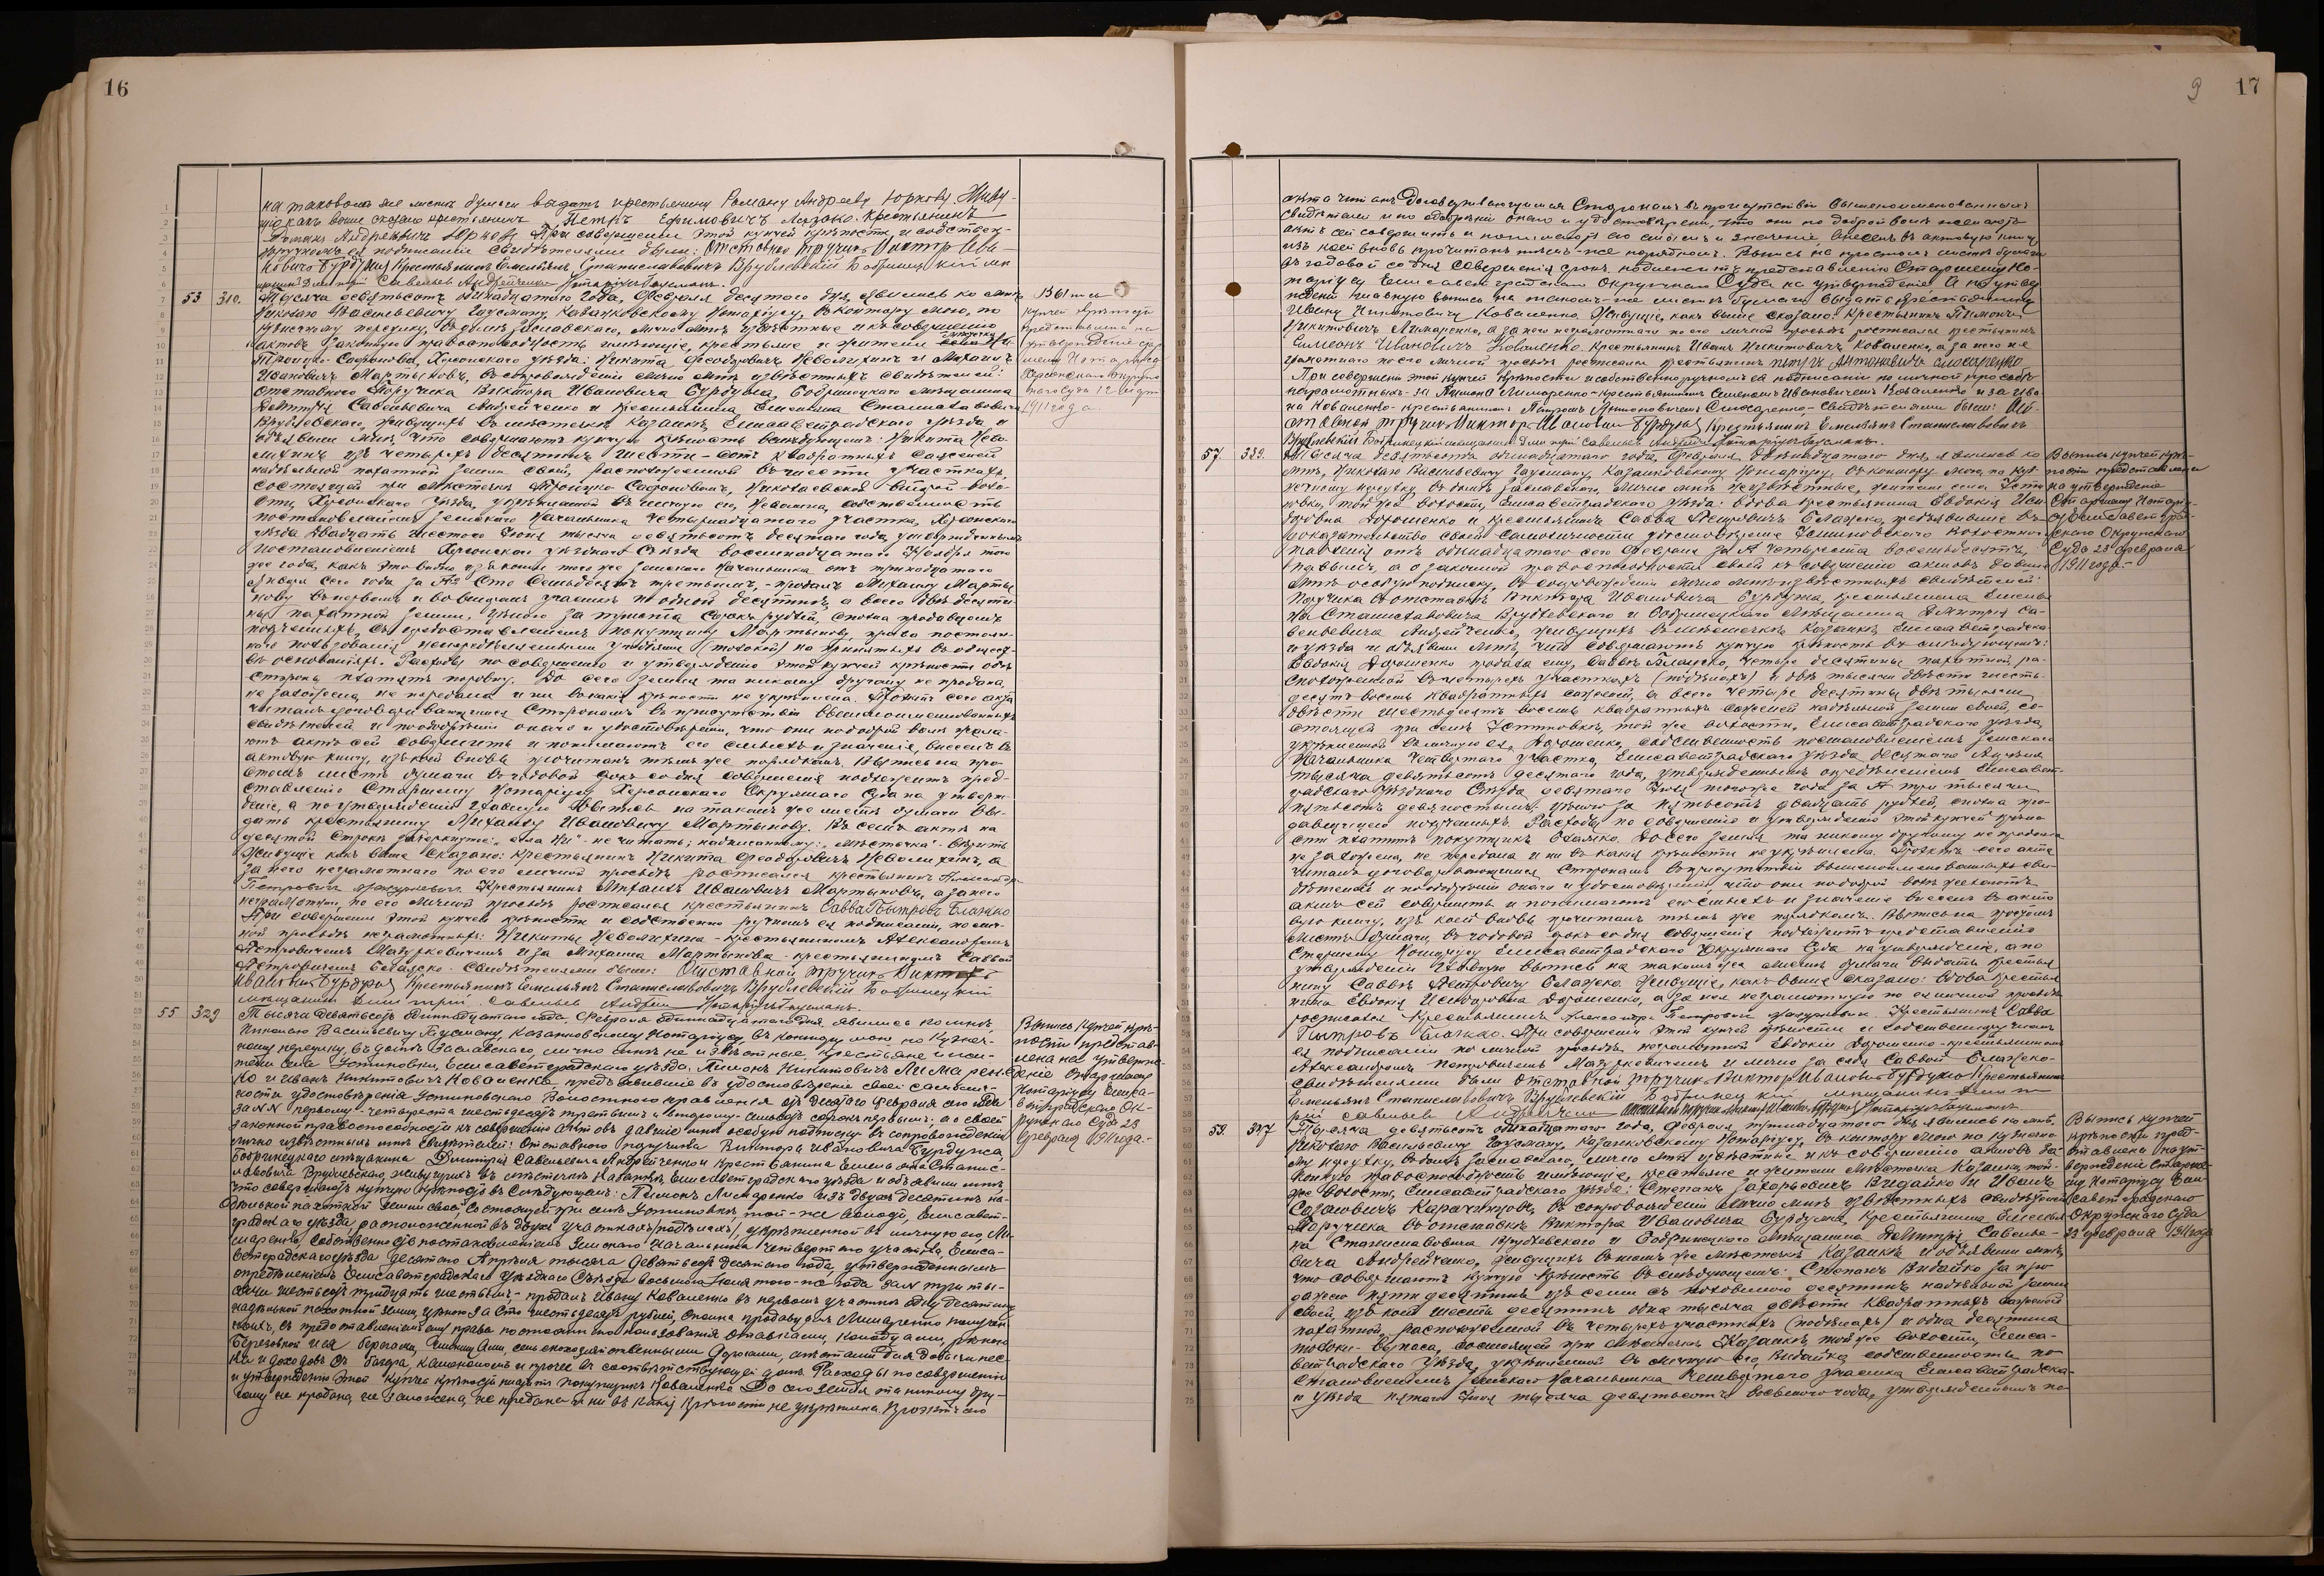 16
на таковомъ же листѣ бумаги выдать крестьянину Роману Андрееву Юркову. Живу-
щіе какъ выше сказано крестьянинъ Петръ Ефимовичъ крестьянинъ
Романъ Андреевичъ Юрковъ. При совершеніи этой купчей крѣпости и собствен-
норучномъ ея подписаніи свидѣтелями были: Отставной поручикъ Викторъ Ива-
новичъ Бурдуна Крестьянинъ Емельянъ Станиславовичъ Врублевскій Бобринецкій мѣ-
щанинъ Дмитрій Савельевъ Андрейченко Нотаріусъ Гаусманъ.
53 310. Тысяча девятьсотъ одиннадцатаго года, Февраля десятаго дня, явились ко мнѣ,
Николаю Васильевичу Гаусману, Казанковскому Нотаріусу, въ контору мою, по
Кузнечному переулку, въ домѣ Заславскаго, лично мнѣ извѣстные и къ совершенію
актовъ законную правоспособность имѣющіе, крестьяне и жители села Но- мѣстечка
Троицко-Сафоново, Херсонскаго уѣзда: Никита Феодоровичъ Неволихинъ и Михаилъ
Ивановичъ Мартыновъ, въ сопровожденіи лично мнѣ извѣстныхъ свидѣтелей:
Отставного Поручика Виктора Ивановича Бурдуна, Бобринецкаго мѣщанина
Дмитрія Савельевича Андрейченко и Крестьянина Емельяна Станиславовича
Врублевскаго, живущихъ въ мѣстечкѣ Казанкѣ, Елисаветградскаго уѣзда и
объявили мнѣ, что совершаютъ купчую крѣпость въ слѣдующемъ: Никита Нево-
лихинъ изъ четырехъ десятинъ шести-сотъ квадратныхъ саженей
надѣльной пахатной земли своей, расположенной въ шести участкахъ,
состоящей при мѣстечкѣ Троицко-Сафоновомъ, Николаевской второй воло-
сти, Херсонскаго уѣзда, укрѣпленной въ личную его, Неволихина, собственность
постановленіемъ Земскаго Начальника четырнадцатаго участка, Херсонскаго
уѣзда двадцать шестого Іюня тысяча девятьсотъ десятаго года, утвержденнымъ
постановленіемъ Херсонскаго уѣзднаго Съѣзда восемнадцатаго Ноября того
же года, какъ это видно изъ копіи того же Земскаго Начальника отъ тринадцатаго
Января сего года за № сто семьдесятъ третьимъ, - продалъ Михаилу Марты-
нову въ первомъ и во второмъ участкѣ по одной десятинѣ, а всего двѣ десяти-
ны пахатной земли, цѣною за триста сорокъ рублей, сполна продавцомъ
полученныхъ, съ предоставленіемъ покупщику Мартынову, права постоян-
наго пользованія нераздѣленными угодіями (толокой) на принятыхъ въ общест-
вѣ основаніяхъ. Расходы по совершенію и утвержденію этой купчей крѣпости обѣ
стороны платятъ поровну. До сего земля та никому другому не продана,
не заложена, не передана и ни въ какія крѣпости не укрѣплена. Проектъ сего акта
читанъ договаривающимся Сторонамъ въ присутствіи вышепоименованныхъ
свидѣтелей и по одобреніи онаго и удостовѣреніи, что они по доброй волѣ жела-
ютъ актъ сей совершить и понимаютъ его смыслъ и значеніе, внесенъ въ
актовую книгу, изъ коей вновь прочитанъ тѣмъ же порядкомъ. Выпись на про-
стомъ листѣ бумаги въ годовой срокъ со дня совершенія подлежитъ пред-
ставленію Старшему Нотаріусу Херсонскаго Окружнаго Суда на утверж-
деніе, а по утвержденіи главную выпись на такомъ же листѣ бумаги вы-
дать крестьянину Михаилу Ивановичу Мартынову. Въ семъ актѣ на
десятой строкѣ зачеркнутое: „села Но" - не читать; надписанному: „мѣстечка" - вѣрить
Живущіе какъ выше сказано: крестьянинъ Никита Феодоровичъ Неволихинъ, а
за него неграмотнаго по его личной просьбѣ росписался крестьянинъ Александръ
Петровичъ Мазуркевичъ. Крестьянинъ Михаилъ Ивановичъ Мартыновъ, а за него
неграмотнаго, по его личной просьбѣ росписался крестьянинъ Савва Пытровъ Блажко
При совершеніи этой купчей крѣпости и собственно ручномъ ея подписаніи, по лич-
ной просьбѣ неграмотныхъ: Никиты Неволихина - крестьяниномъ Александромъ
Петровичемъ Мазуркевичемъ и за Михаила Мартынова - крестьяниномъ Саввой
Петровичемъ Блажко. Свидѣтелями были: Отставной поручикъ Викторъ
Ивановичъ Бурдуна Крестьянинъ Емельянъ Станиславовичъ Врублевскій Бобринецкій
мѣщанинъ Дмитрій Савельевъ Андрей Нотаріусъ Гаусманъ.
Выпись
купчей крѣпости
представлена на
утвержденіе Стар-
шему Нотаріусу
Херсонскаго Окруж-
наго Суда 12
1911 года
55 329 Тысяча девятьсотъ одиннадцатаго года, Февраля одиннадцатаго дня, явились ко мнѣ,
Николаю Васильевичу Гаусману, Казанковскому Нотаріусу, въ контору мою по Кузнеч-
ному переулку, въ домѣ Заславскаго, лично мнѣ не извѣстные, крестьяне и жи-
тели села Устиновки, Елисаветградскаго уѣзда: Пимонъ Никитовичъ Лимарен-
ко и Иванъ Никитовичъ Коваленко, предъявившіе въ удостовѣреніе своей самолич-
ности удостовѣренія Устиновскаго Волостного правленія отъ десятаго Февраля сего года
за №№ первому - четыреста шестьдесятъ третьимъ и второму - шестьсотъ сорокъ первымъ, а о своей
законной правоспособности къ совершенію актовъ давшіе мнѣ особую подписку въ сопровожденіи
лично извѣстныхъ мнѣ свидѣтелей: Отставного поручика Виктора Ивановича Бурдуна,
Бобринецкаго мѣщанина Дмитрія Савельевича Андрейченко и крестьянина Емельяна Станис-
лавовича Врублевскаго, живущихъ въ мѣстечкѣ Казанкѣ, Елисаветградскаго уѣзда и объявили мнѣ
что совершаютъ купчую крѣпость въ слѣдующемъ: Пимонъ Лимаренко изъ двухъ десятинъ на-
дѣльной пахатной земли своей, состоящей при селѣ Устиновкѣ, той-же волости, Елисавет-
градскаго уѣзда, расположенной въ двухъ участкахъ (подѣлахъ), укрѣпленной въ личную его, Ли-
маренко, собственность постановленіемъ Земскаго Начальника четвертаго участка, Елиса-
ветградскаго уѣзда десятаго Апрѣля тысяча девятьсотъ десятаго года, утвержденнымъ
опредѣленіемъ Елисаветградскаго уѣзднаго Съѣзда восьмого Іюля того-же года за № три ты-
сячи шестьсотъ тридцать шестымъ, - продалъ Ивану Коваленко въ первомъ участкѣ одну десятину
надѣльной пахатной земли, цѣною за сто шестьдесятъ рублей, сполна продавцомъ Лимаренко получен-
ныхъ, съ предоставленіемъ ему права постояннаго пользованія ставками, колодцами, рѣкою
Березовкой и ея берегами, улицами, сельскохозяйственными дорогами, мѣстами для добычи пес-
ка и доходовъ съ базара, каменоломъ и прочее въ соотвѣтствующей долѣ. Расходы по совершенію
и утвержденію этой купчей крѣпости платитъ покупщикъ Коваленко. До сего земля та никому дру-
гому не продана, не заложена, не передана и ни въ какія крѣпости не укрѣплена. Проектъ сего
Выпись купчей крѣ-
пости представ-
лена на утверж-
деніе Старшему
Нотаріусу Елиса-
ветградскаго Ок-
ружнаго Суда 23
Февраля 1911 года.-
9 17
акта читанъ Договаривающимся Сторонамъ въ присутствіи вышепоименованныхъ
свидѣтелей и по одобреніи онаго и удостовѣреніи, что они по доброй волѣ желаютъ
актъ сей совершить и понимаютъ его смыслъ и значеніе, внесенъ въ актовую книгу
изъ коей вновь прочитанъ тѣмъ-же порядкомъ. Выпись на простомъ листѣ бумаги
въ годовой со дня совершенія срокъ подлежитъ представленію Старшему Но-
таріусу Елисаветградскаго Окружнаго Суда на утвержденіе. А по утвер-
жденіи главную выпись на такомъ-же листѣ бумаги выдать крестьянину
Ивану Никитовичу Коваленко. Живущіе, какъ выше сказано: Крестьянинъ Пимонъ
Никитовичъ Лимаренко, а за него неграмотнаго по его личной просьбѣ росписался крестьянинъ
Симеонъ Ивановичъ Коваленко. Крестьянинъ Иванъ Никитовичъ Коваленко, а за него не
грамотнаго по его личной просьбѣ росписался крестьянинъ Пытръ Антоновичъ Слюсаренко
При совершеніи этой купчей крѣпости и собственноручномъ ея подписаніи по личной просьбѣ
неграмотныхъ - за Пимона Лимаренко - крестьяниномъ Семеномъ Ивановичемъ Коваленко и за Ива-
на Коваленко - крестьяниномъ Петромъ Антоновичемъ Слюсаренко, - свидѣтелями были: От-
ставной поручикъ Викторъ Ивановичъ Бурдуна Крестьянинъ Емельянъ Станиславовичъ
Врублевскій Бобринецкій мѣщанинъ Дмитрій Савельевъ Андрей Нотаріусъ Гаусманъ.
57. 339. Тысяча девятьсотъ одиннадцатаго года, Февраля двѣнадцатаго дня, явились ко
мнѣ, Николаю Васильевичу Гаусману, Казанковскому Нотаріусу, въ контору мою, по Куз-
нечному переулку въ домѣ Заславскаго, лично мнѣ неизвѣстные, жители села Усти-
новки, той же волости, Елисаветградскаго уѣзда: вдова крестьянина Евдокія Иси-
доровна Дорошенко и крестьянинъ Савва Петровичъ Блажко, предъявившіе въ
доказательство своей самоличности удостовѣреніе Устиновскаго Волостного
Правленія отъ одиннадцатаго сего Февраля за № четыреста восемьдесятъ
первымъ, а о законной правоспособности своей къ совершенію актовъ давшіе
мнѣ особую подписку, въ сопровожденіи лично мнѣ извѣстныхъ свидѣтелей:
Поручика въ отставкѣ Виктора Ивановича Бурдуна, крестьянина Емелья-
на Станиславовича Врублевскаго и Бобринецкаго Мѣщанина Дмитрія Са-
вельевича Андрейченко, живущихъ въ мѣстечкѣ Казанкѣ Елисаветградска-
го уѣзда и объявили мнѣ, что совершаютъ купчую крѣпость въ слѣдующемъ:
Евдокія Дорошенко продала ему, Саввѣ Блажко, четыре десятины пахатной, ра-
сположенной въ четырехъ участкахъ (подѣлахъ) и двѣ тысячи двѣсти шесть-
десятъ восемь квадратныхъ саженей, а всего четыре десятины двѣ тысячи
двѣсти шестьдесятъ восемь квадратныхъ саженей надѣльной земли своей, со-
стоящей при селѣ Устиновкѣ, той же волости, Елисаветградскаго уѣзда,
укрѣпленной въ личную ея, Дорошенко, собственность постановленіемъ Земскаго
Начальника Четвертаго участка, Елисаветградскаго уѣзда десятаго Апрѣля
тысяча девятьсотъ десятаго года, утвержденнымъ опредѣленіемъ Елисавет-
градскаго Уѣзднаго Съѣзда девятаго Іюля того же года за № три тысячи
пятьсотъ девяностымъ, цѣною за пятьсотъ двадцать рублей, сполна про-
давщицею полученныхъ. Расходы по совершенію и утвержденію этой купчей крѣпо-
сти платитъ покупщикъ Блажко. До сего земля та никому другому не продана
не заложена, не передана и ни въ какія крѣпости не укрѣплена. Проектъ сего акта
читанъ договаривающимся Сторонамъ въ присутствіи вышепоименованныхъ сви-
дѣтелей и по одобреніи онаго и удостовѣреніи что они по доброй волѣ желаютъ
актъ сей совершить и понимаютъ его смыслъ и значеніе внесенъ въ акто-
вую книгу, изъ коей вновь прочитанъ тѣмъ же порядкомъ. Выпись на простомъ
листѣ бумаги, въ годовой срокъ со дня совершенія подлежитъ представленію
Старшему Нотаріусу Елисаветградскаго Окружнаго Суда на утвержденіе, а по
утвержденіи главную выпись на такомъ же листѣ бумаги выдать крестья-
нину Саввѣ Петровичу Блажко. Живущіе, какъ выше сказано: вдова крестья-
нина Евдокія Исидоровна Дорошенко, а за нея неграмотную по ея личной просьбѣ
росписался Крестьянинъ Александръ Петровичъ Мазуркевичъ. Крестьянинъ Савва
Пытровъ Блажко. При совершеніи этой купчей крѣпости и собственноручномъ
ея подписаніи по личной просьбѣ неграмотной Евдокіи Дорошенко - крестьяниномъ
Александромъ Петровичемъ Мазуркевичемъ и лично за себя Саввой Блажко -
свидѣтелями были Отставной поручикъ Викторъ Ивановичъ Бурдуна Крестьянинъ
Емельянъ Станиславовичъ Врублевскій Бобринецкій мѣщанинъ Дмит-
рій Савельевъ Андрейченко Нотаріусъ Гаусманъ.
Выпись купчей крѣ-
пости представлена
на утвержденіе
Старшему Нотарі-
усу Елисаветград-
скаго Окружнаго
Суда 23 Февраля
1911 года.-
59. 347 Тысяча девятьсотъ одиннадцатаго года, Февраля тринадцатаго дня, явились ко мнѣ,
Николаю Васильевичу Гаусману, Казанковскому Нотаріусу, въ контору мою по Кузнечно-
му переулку, въ домѣ Заславскаго, лично мнѣ извѣстные и къ совершенію актовъ за-
конную правоспособность имѣющіе, крестьяне и жители мѣстечка Казанки, той-
же волости, Елисаветградскаго уѣзда: Степанъ Захарьевичъ Видайко и Иванъ
Сазановичъ Карачинцовъ, въ сопровожденіи лично мнѣ извѣстныхъ свидѣтелей
Поручика въ отставкѣ Виктора Ивановича Бурдуна, Крестьянина Емелья-
на Станиславовича Врублевскаго и Бобринецкаго мѣщанина Дмитрія Савелье-
вича Андрейченко, живущихъ въ томъ же мѣстечкѣ Казанкѣ и объявили мнѣ,
что совершаютъ купчую крѣпость въ слѣдующемъ: Степанъ Видайко за про-
дажею пяти десятинъ изъ семи съ половиною десятинъ надѣльной земли
своей, изъ коей шесть десятинъ одна тысяча двѣсти квадратныхъ саженей
пахатной, расположенной въ четырехъ участкахъ (подѣлахъ) и одна десятина
толоки-выпаса, состоящей при мѣстечкѣ Казанкѣ той же волости, Елиса-
ветградскаго уѣзда, укрѣпленной въ личную его, Видайко, собственность по-
становленіемъ Земскаго Начальника Четвертаго участка Елисаветградска-
го уѣзда пятаго Іюня тысяча девятьсотъ восьмого года, утвержденнымъ по-
Выпись купчей
крѣпости пред-
ставлена на ут-
вержденіе Старше-
му Нотаріусу Ели-
саветградскаго
Окружнаго Суда
23 февраля 1911 года